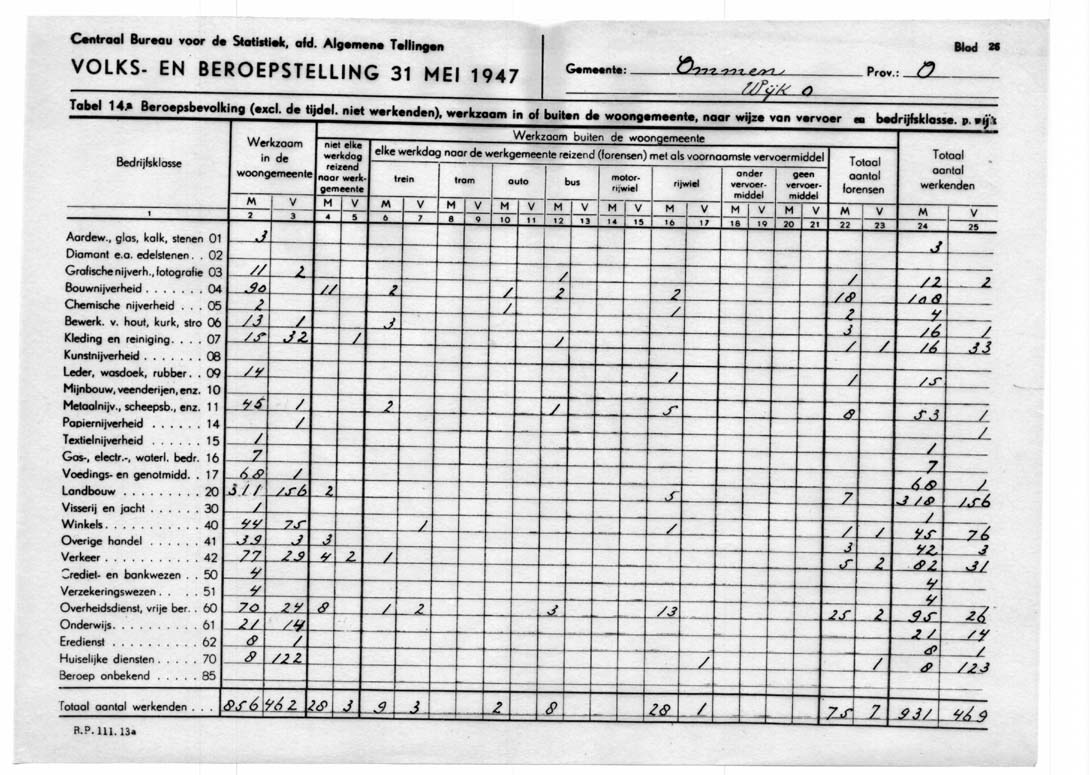 Centraal Bureau voor de Statistiek, afd. Algemene Tellingen
Blad 26
VOLKS- EN BEROEPSTELLING 31 MEI 1947
Gemeente: Ommen Prov.: O
Wijk O
Tabel 14a Beroepsbevolking (excl. de tijdel. niet werkenden), werkzaam in of buiten de woongemeente, naar wijze van vervoer en bedrijfsklasse. p. wijk
Bedrijfsklasse
Werkzaam in de woongemeente
Werkzaam buiten de woongemeente
niet elke werkdag reizend naar werkgemeente
elke werkdag naar de werkgemeente reizend (forensen) met als voornaamste vervoermiddel
trein tram auto bus motorrijwiel rijwiel ander vervoermiddel geen vervoermiddel
Totaal aantal forensen
Totaal aantal werkenden
M V M V M V M V M V M V M V M V M V M V M V M V
1 2 3 4 5 6 7 8 9 10 11 12 13 14 15 16 17 18 19 20 21 22 23 24 25
Aardew., glas, kalk, stenen 01 3 3
Diamant e.a. edelstenen . . 02
Grafische nijverh., fotografie 03 11 2 1 1 12 2
Bouwnijverheid . . . . . . . 04 90 11 2 1 2 2 18 108
Chemische nijverheid . . . 05 2 1 1 2 4
Bewerk. v. hout, kurk, stro 06 13 1 3 3 16 1
Kleding en reiniging. . . . 07 15 32 1 1 1 1 16 33
Kunstnijverheid . . . . . . . 08
Leder, wasdoek, rubber. . 09 14 1 1 15
Mijnbouw, veenderijen, enz. 10
Metaalnijv., scheepsb., enz. 11 45 1 2 1 5 8 53 1
Papiernijverheid . . . . . . 14 1 1
Textielnijverheid . . . . . . 15 1 1
Gas-, electr.-, waterl. bedr. 16 7 7
Voedings- en genotmidd. . 17 68 1 68 1
Landbouw . . . . . . . . . 20 311 156 2 5 7 318 156
Visserij en jacht . . . . . . 30 1 1
Winkels. . . . . . . . . . . 40 44 75 1 1 1 1 45 76
Overige handel . . . . . . 41 39 3 3 3 42 3
Verkeer . . . . . . . . . . . 42 77 29 4 2 1 5 2 82 31
Crediet- en bankwezen . . 50 4 4
Verzekeringswezen . . . . 51 4 4
Overheidsdienst, vrije ber. . 60 70 24 8 1 2 3 13 25 2 95 26
Onderwijs. . . . . . . . . . 61 21 14 21 14
Eredienst . . . . . . . . . . 62 8 1 8 1
Huiselijke diensten . . . . . 70 8 122 1 1 8 123
Beroep onbekend . . . . . 85
Totaal aantal werkenden . . . 856 462 28 3 9 3 2 8 28 1 75 7 931 469
R.P. 111. 13a